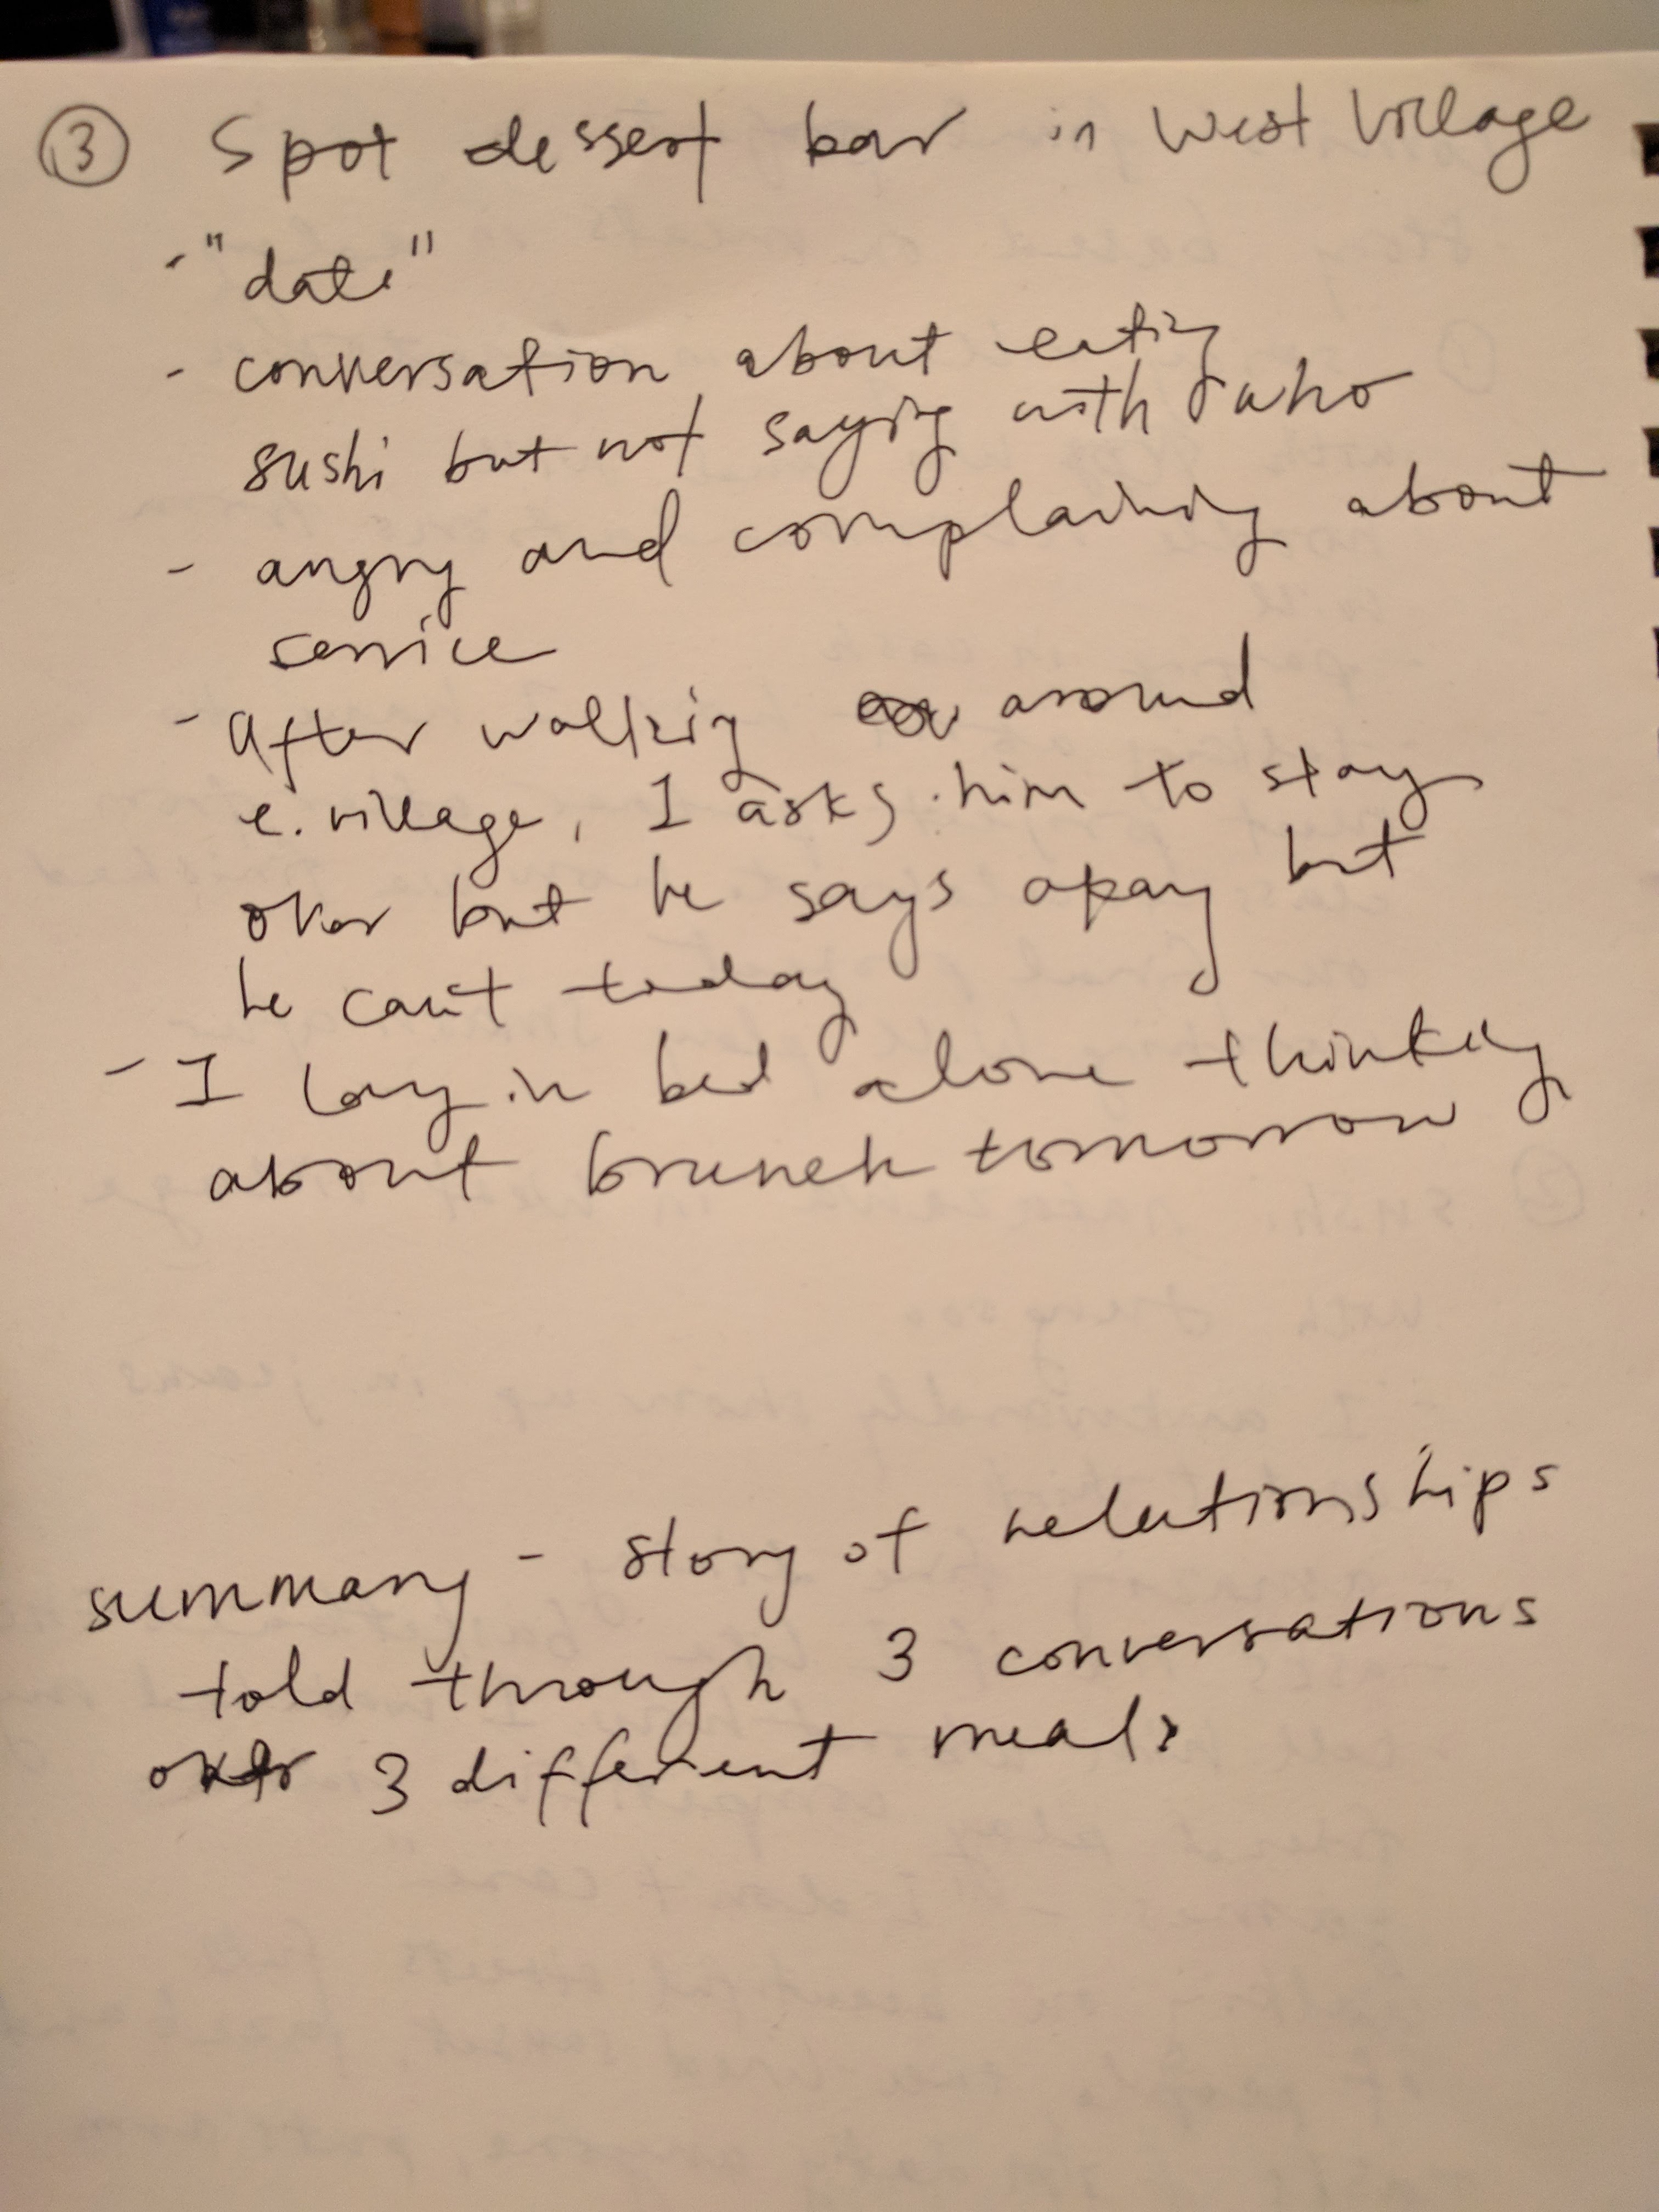 ③ Spot dessert bar in West Village
- "date"
- conversation about eating
sushi but not saying with who
- angry and complaining about
service
- After walking around
e. village, I asks him to stay
over but he says okay but
he can't today
- I lay in bed alone thinking
about brunch tomorrow
summary - story of relationships
told through 3 conversations
over 3 different meals